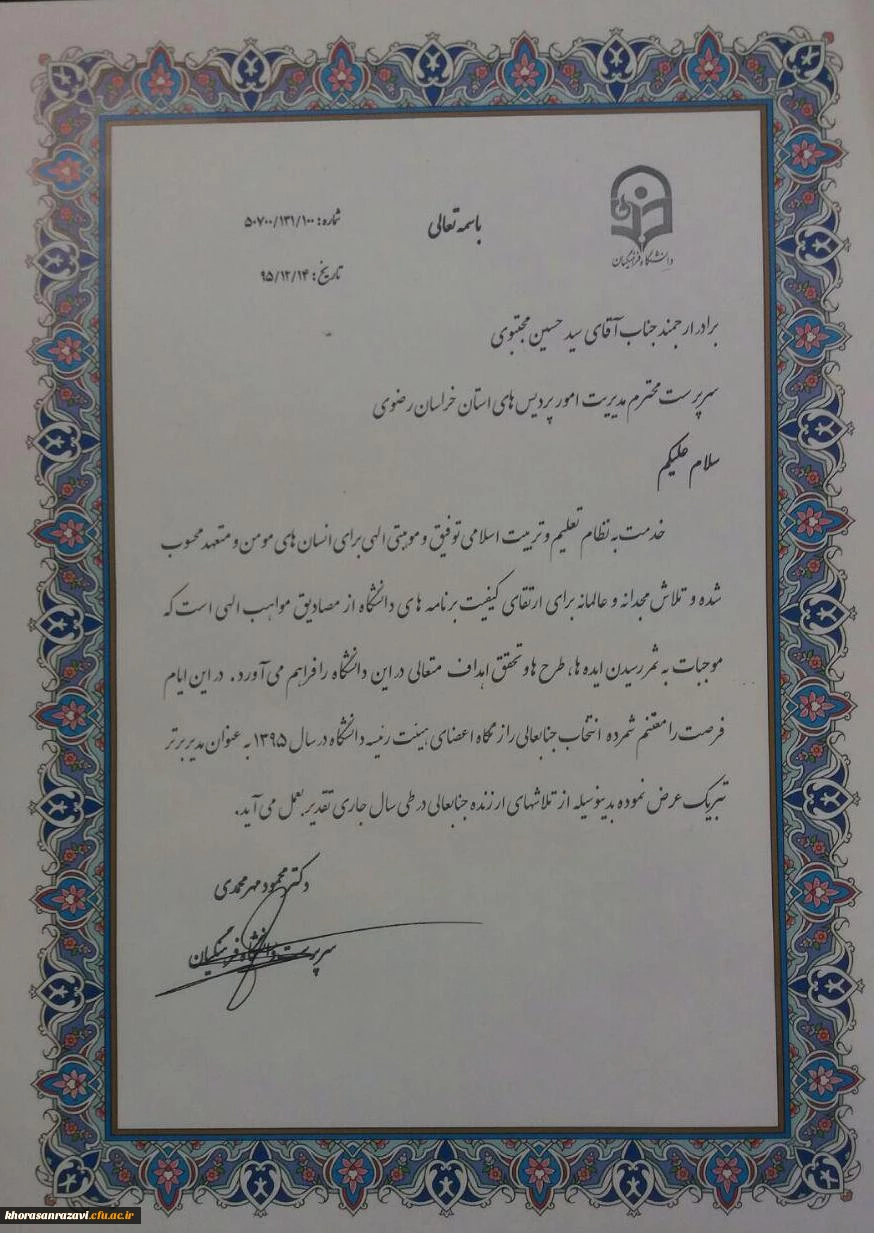 دانشگاه فرهنگیان
باسمه تعالی
شماره: ۵۰۷۰۰/۱۳۱/۱۰۰
تاریخ: ۹۵/۱۲/۱۴
برادر ارجمند جناب آقای سید حسین مجتبوی
سرپرست محترم مدیریت امور پردیس های استان خراسان رضوی
سلام علیکم
خدمت به نظام تعلیم و تربیت اسلامی توفیق و موهبتی الهی برای انسان های مومن و متعهد محسوب
شده و تلاش مجدانه و عالمانه برای ارتقای کیفیت برنامه های دانشگاه از مصادیق مواهب الهی است که
موجبات به ثمر رسیدن ایده ها، طرح ها و تحقق اهداف متعالی در این دانشگاه را فراهم می آورد. در این ایام
فرصت را مغتنم شمرده انتخاب جنابعالی را از نگاه اعضای هیئت رئیسه دانشگاه در سال ۱۳۹۵ به عنوان مدیر برتر
تبریک عرض نموده بدینوسیله از تلاشهای ارزنده جنابعالی در طی سال جاری تقدیر بعمل می آید.
دکتر محمود مهرمحمدی
سرپرست دانشگاه فرهنگیان
khorasanrazavi.cfu.ac.ir